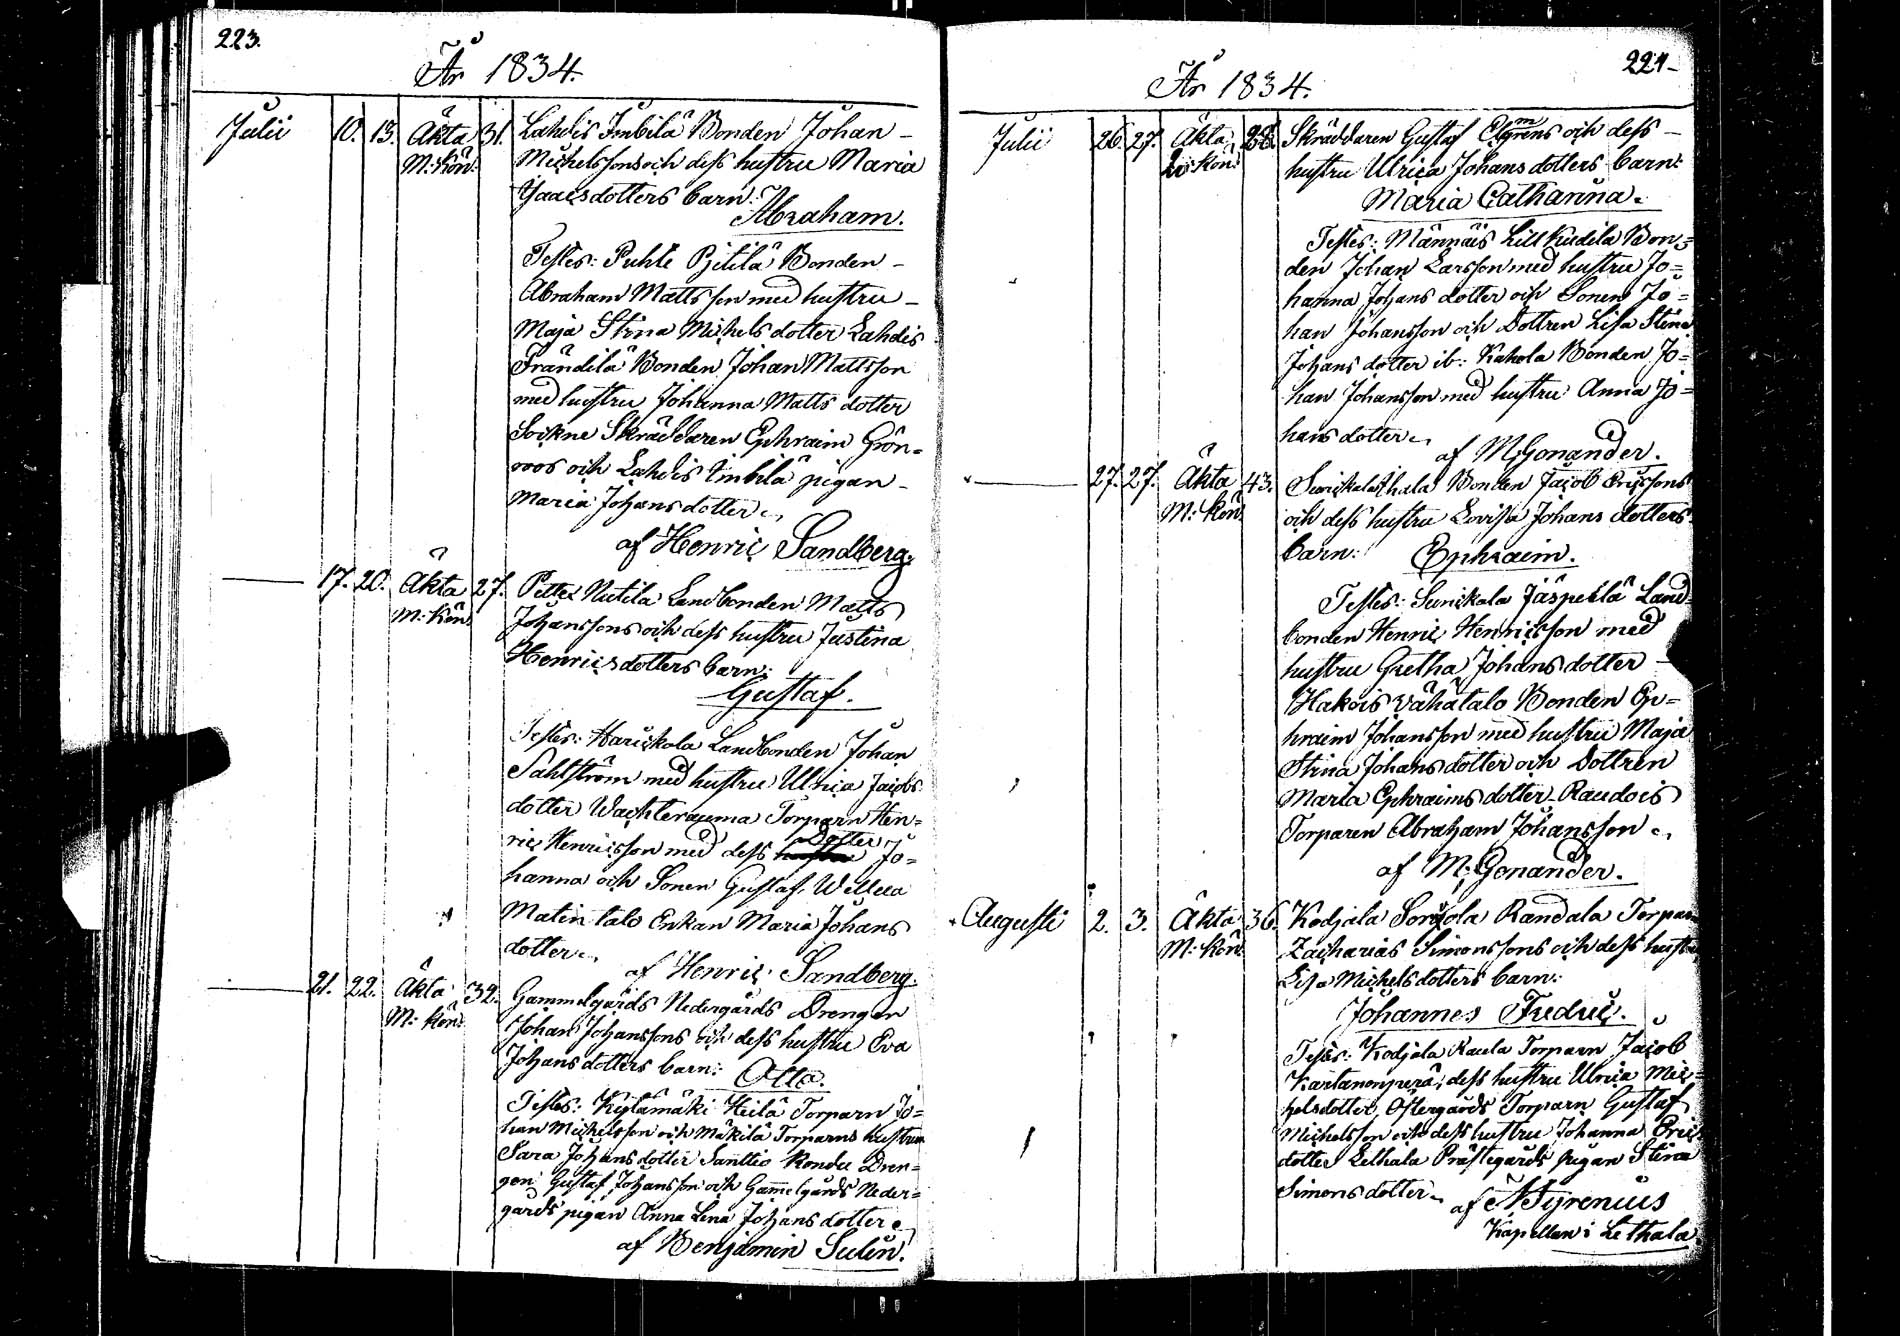 223.
År 1834.
Julii 10. 13. Äkta 31. Lahdis Imbilä Bonden Johan
M: Kön: Michelssons och dess hustru Maria
Isaacsdotters barn:
Abraham.
Testes: Puhle Pjetilä Bonden
Abraham Mattsson med hustru
Maja Stina Michelsdotter Lahdis
Frändilä Bonden Johan Mattsson
med hustru Johanna Matts dotter
Sockne Skräddaren Ephraim Grön=
roos och Lahdis Imbilä pigan
Maria Johansdotter
af Henric Sandberg.
17. 20. Äkta 27. Petter Nutila Landbonden Matts
M: Kön: Johanssons och dess hustru Justina
Henricsdotters barn:
Gustaf.
Testes: Harickola Landbonden Johan
Sahlström med hustru Ulrica Jacobs
dotter Wachterauma Torparn Hen=
ric Henricsson med dess Dotter Jo=
hanna och Sonen Gustaf.
Matin talo Enkan Maria Johans
dotter
af Henric Sandberg.
21. 22. Äkta 32. Gammelgårds Nedergårds Drengen
M: Kön: Johan Johanssons och dess hustru Eva
Johansdotters barn: Otto.
Testes: Kylämäki Heilä Torparn Jo=
han Michelsson och Mäkilä Torparns hustru
Sara Johansdotter Santtio Kondu Dren=
gen Gustaf Johansson och Gammelgårds Neder=
gårds pigan Anna Lena Johans dotter
af Benjamin Sulin.
224
År 1834.
Julii 26. 27. Äkta 28. Skräddaren Gustaf Elgrens och dess
Qv: Kön: hustru Ulrica Johans dotters barn:
Maria Catharina.
Testes: Männäis Lill Kudila Bon=
den Johan Larsson med hustru Jo=
hanna Johans dotter och Sonen Jo=
han Johansson och Dottren Lisa Stina
Johans dotter ib: Kahola Bonden Jo=
han Johansson med hustru Anna Jo=
hans dotter
af M: Gonander.
27. 27. Äkta 43. Sunickala Bonden Jacob Ericssons
M: Kön: och dess hustru Lovisa Johans dotters
barn: Ephraim.
Testes: Sunickala Jäspelä Land=
bonden Henric Henricsson med
hustru Gretha Johans dotter
Hakois Vähätalo Bonden Ep=
hraim Johansson med hustru Maja
Stina Johans dotter och Dottren
Maria Ephraims dotter Raudois
Torparen Abraham Johansson
af M: Gonander.
Augusti 2. 3. Äkta 36. Kodjala Sorjola Randala Torparn
M: Kön: Zacharias Simonssons och dess hustru
Lisa Michelsdotters barn:
Johannes Fredric.
Testes: Kodjala Raula Torparn Jacob
Kartanonperä, dess hustru Ulrica Mic=
helsdotter, Östergårds Torparn Gustaf
Michelsson och dess hustru Johanna Eric
dotter Lethala Prästegårds pigan Stina
Simons dotter
af N Syrenius
Kapellan i Lethala